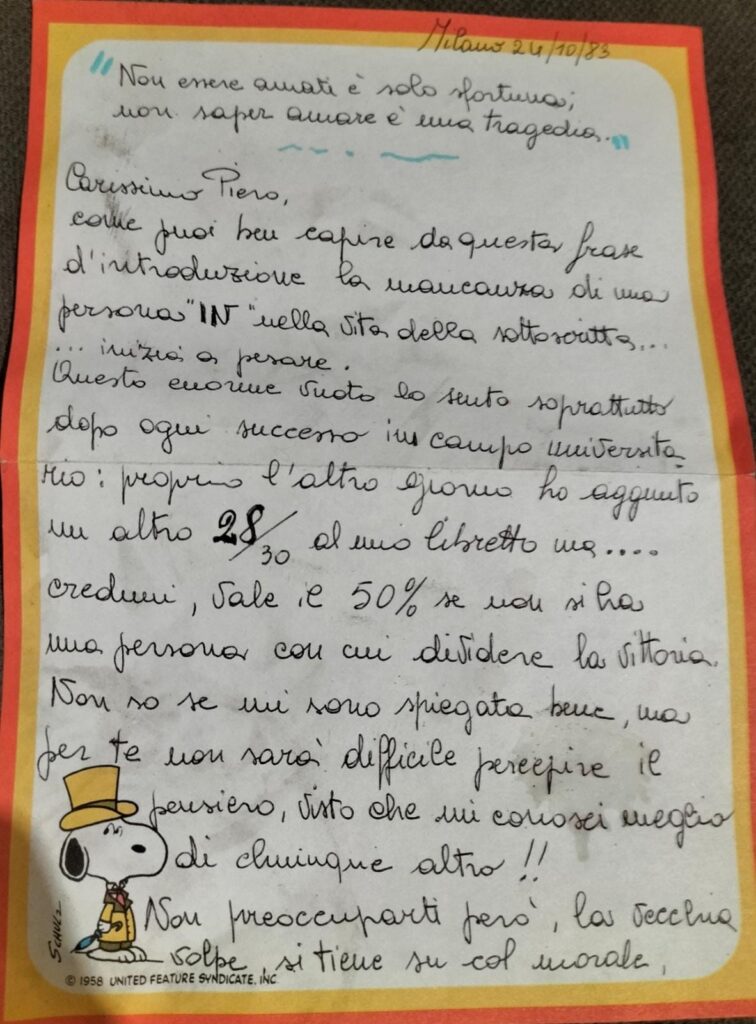 Milano 24/10/83
"Non essere amati è solo sfortuna;
non saper amare è una tragedia."
Carissimo Piero,
come puoi ben capire da questa frase
d'introduzione la mancanza di una
persona "IN" nella vita della sottoscritta...
... inizia a pesare.
Questo enorme vuoto lo sento soprattutto
dopo ogni successo in campo universita-
rio: proprio l'altro giorno ho aggiunto
un altro 28/30 al mio libretto ma....
credimi, vale il 50% se non si ha
una persona con cui dividere la vittoria.
Non so se mi sono spiegata bene, ma
per te non sarà difficile percepire il
pensiero, visto che mi conosci meglio
di chiunque altro!!
Non preoccuparti però, la vecchia
volpe, si tiene su col morale,
SCHULZ
© 1958 UNITED FEATURE SYNDICATE, INC.